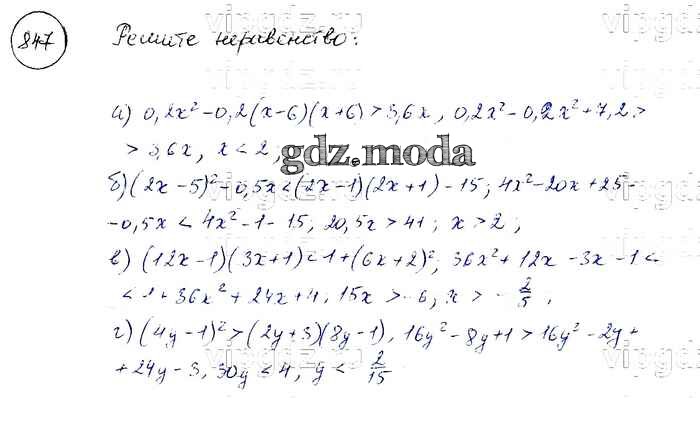 847 Решите неравенство:
а) 0,2x² - 0,2(x-6)(x+6) > 3,6x, 0,2x² - 0,2x² + 7,2 >
> 3,6x, x < 2;
gdz.moda
б) (2x-5)² - 0,5x < (2x-1)(2x+1) - 15; 4x² - 20x + 25 -
- 0,5x < 4x² - 1 - 15; 20,5x > 41; x > 2;
в) (12x-1)(3x+1) < 1 + (6x+2)²; 36x² + 12x - 3x - 1 <
< 1 + 36x² + 24x + 4, 15x > -6; x > -2/5,
г) (4y-1)² > (2y+3)(8y-1), 16y² - 8y + 1 > 16y² - 2y +
+ 24y - 3, 30y < 4, y < 2/15